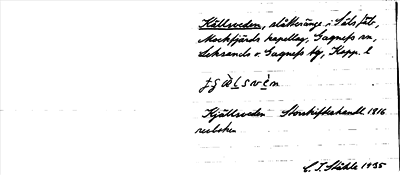 Källsveden, slåtteränge i Säls fäb.,
Mockfjärds kapellag, Gagnefs sn,
Leksands o. Gagnefs tg, Kopp. l
Kjällsveden Storskifteshandl. 1816
C. I. Ståhle 1935